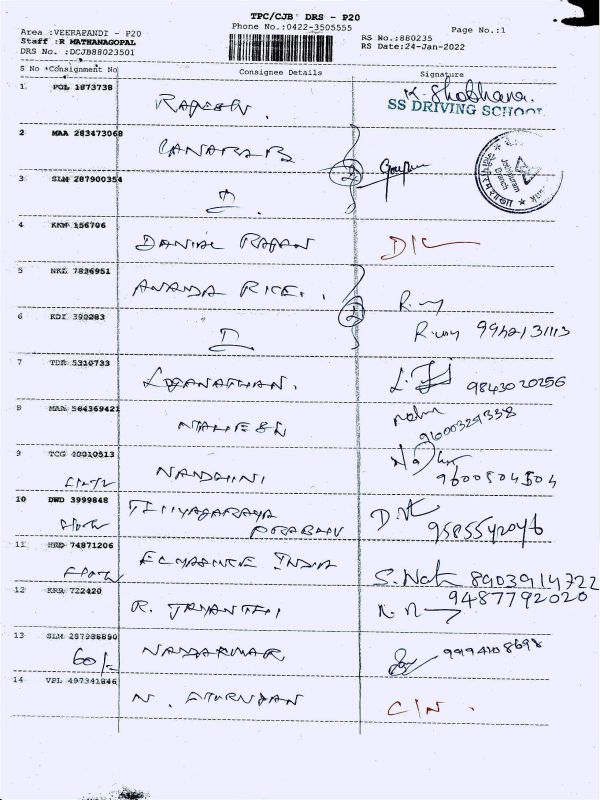 TPC/CJB DRS - P20
Area :VEERAPANDI - P20 Phone No.:0422-3505555 Page No.:1
Staff :R MATHANAGOPAL RS No.:880235
DRS No. :DCJB88023501 RS Date:24-Jan-2022
S No *Consignment No Consignee Details Signature
1 POL 1873738 RAJESH. K. Shobhana.
SS DRIVING SCHOOL
2 MAA 283473068 CANARA B
3 SLM 287900354 D
4 KNM 156706 DANIAL RAJAN D/L
5 NKL 7836951 ANANDA RICE.
6 KDI 390283 D 9942131113
7 TDR 5310733 LOGANATHAN. 9843020256
8 MAA 564369421 9600329338
9 TCG 40010513 NANDHINI 9600504504
10 DWD 3999848 THIYAGARAYA
PRABHU 9585542046
11 HRD 74871206 ELYSANCE INDIA S. Nath 8903914722
12 KRR 722420 R. JAYANTHI 9487792020
13 SLM 287988890 NANDAKUMAR 9994108698
60/-
14 VPL 497341846 C/N.